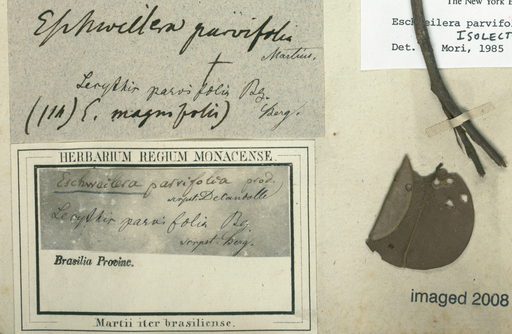 Eschweilera parvifolia
Martius.
Lecythis parvifolia Bg.
Berg.
(114) E. magnifolia)
The New York B
Eschweilera parvifol
ISOLECT
Det. Mori, 1985
HERBARIUM REGIUM MONACENSE
Eschweilera parvifolia prod.
script. Decandolle
Lecythis parvifolia Bg.
script. Berg.
Brasilia Provinc.
Martii iter brasiliense.
imaged 2008